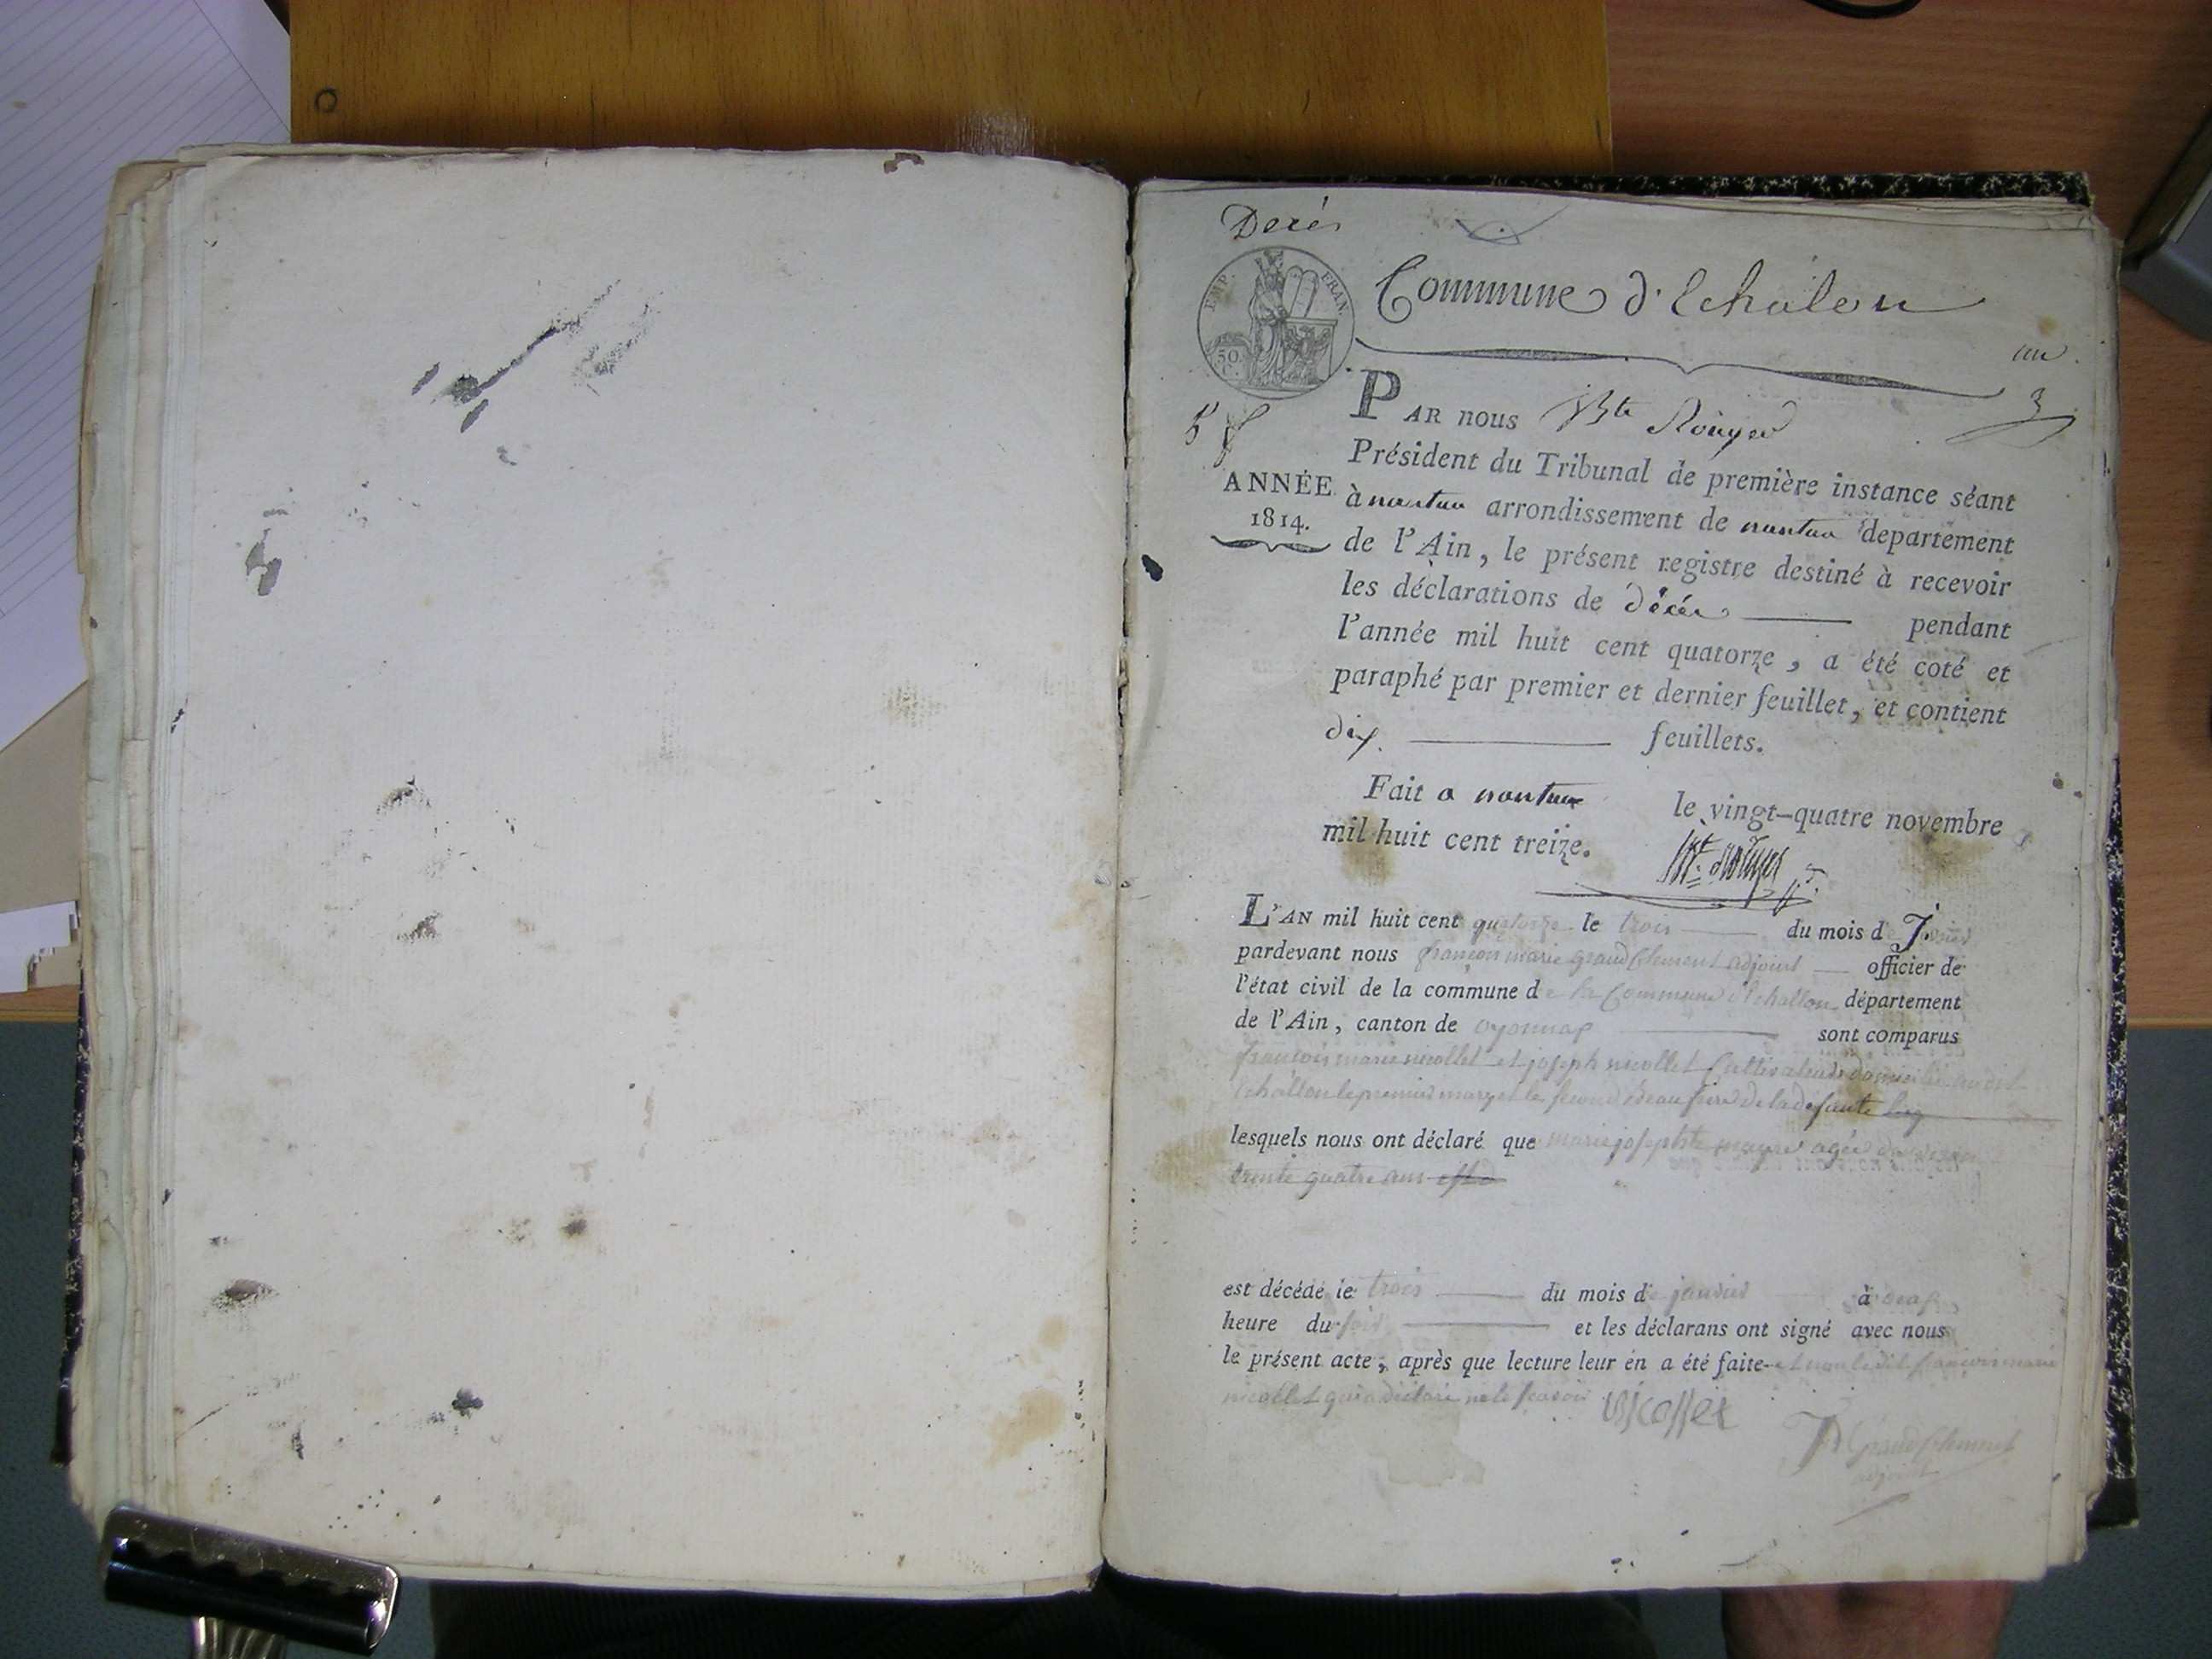 Décès
Commune d'Echalon
EMP. FRAN.
50
C.
un
PAR nous Bte Rouyer
Président du Tribunal de première instance séant
ANNÉE
1814.
à nantua arrondissement de nantua département
de l'Ain, le présent registre destiné à recevoir
les déclarations de décès pendant
l'année mil huit cent quatorze, a été coté et
paraphé par premier et dernier feuillet, et contient
dix feuillets.
Fait a nantua le vingt-quatre novembre
mil huit cent treize.
Bte Rouyer
L'AN mil huit cent quatorze le trois du mois de Janvier
pardevant nous françois marie grand Clement adjoint officier de
l'état civil de la commune de la Commune d'Echallon département
de l'Ain, canton de oyonnax sont comparus
francois marie nicollet et joseph nicollet Cultivateurs domiciliés audit
Echallon le premier mary et le second beau frere de la defunte
lesquels nous ont déclaré que marie josephte mayre agée d'environ
trente quatre ans
est décédé le trois du mois de janvier à
heure du soir et les déclarans ont signé avec nous
le présent acte, après que lecture leur en a été faite et non ledit francois marie
nicollet qui a déclaré ne le scavoir
Nicollet
Grand Clement
adjoint